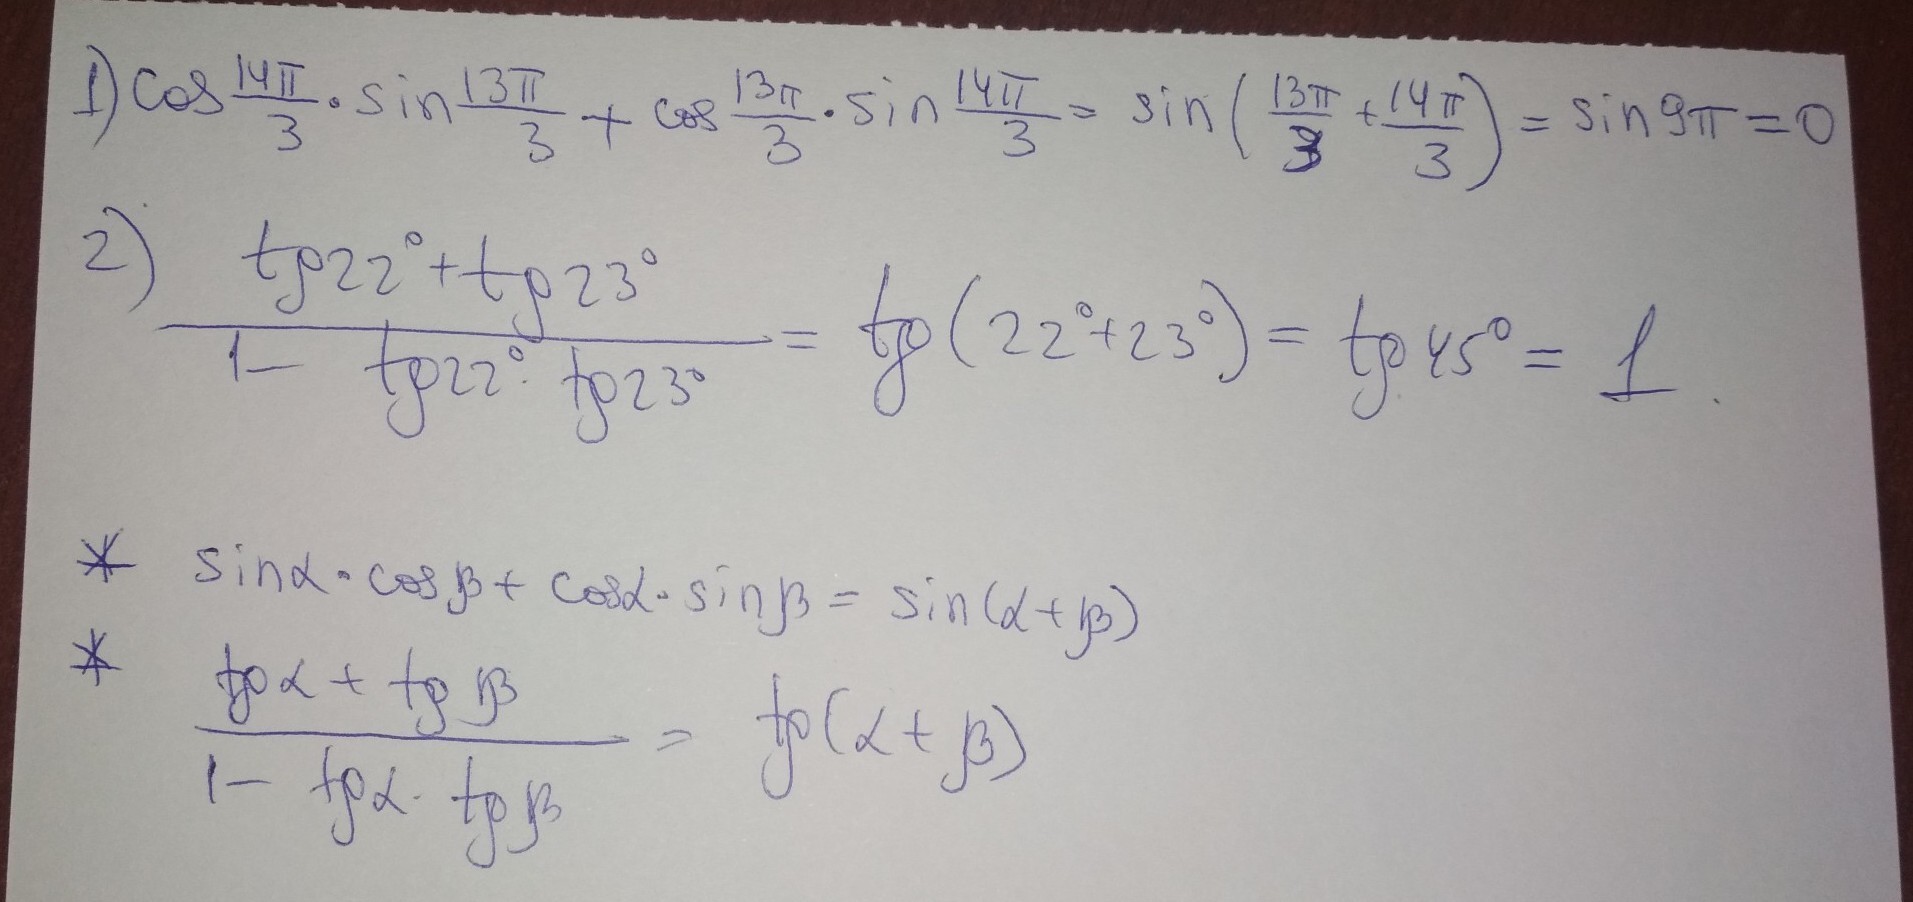 1) cos 14π/3 · sin 13π/3 + cos 13π/3 · sin 14π/3 = sin(13π/3 + 14π/3) = sin 9π = 0
2) (tg22° + tg23°)/(1 - tg22° · tg23°) = tg(22° + 23°) = tg45° = 1.
* sinα · cosβ + cosα · sinβ = sin(α+β)
* (tgα + tgβ)/(1 - tgα · tgβ) = tg(α+β)